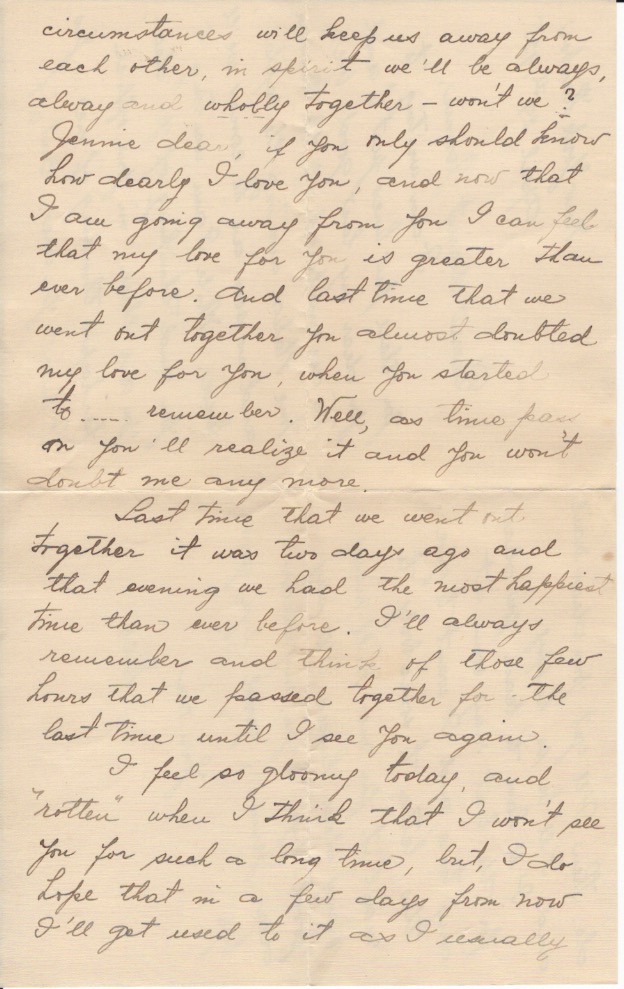 circumstances will keep us away from
each other, in spirit we'll be always,
alway and wholly together – won't we?
Jennie dear, if you only should know
how dearly I love you, and now that
I am going away from you I can feel
that my love for you is greater than
ever before. And last time that we
went out together you almost doubted
my love for you, when you started
to ..... remember. Well, as time pass
on you'll realize it and you won't
doubt me any more.
Last time that we went out
together it was two days ago and
that evening we had the most happiest
time than ever before. I'll always
remember and think of those few
hours that we passed together for the
last time until I see you again.
I feel so gloomy today, and
"rotten" when I think that I won't see
you for such a long time, but, I do
hope that in a few days from now
I'll get used to it as I usually